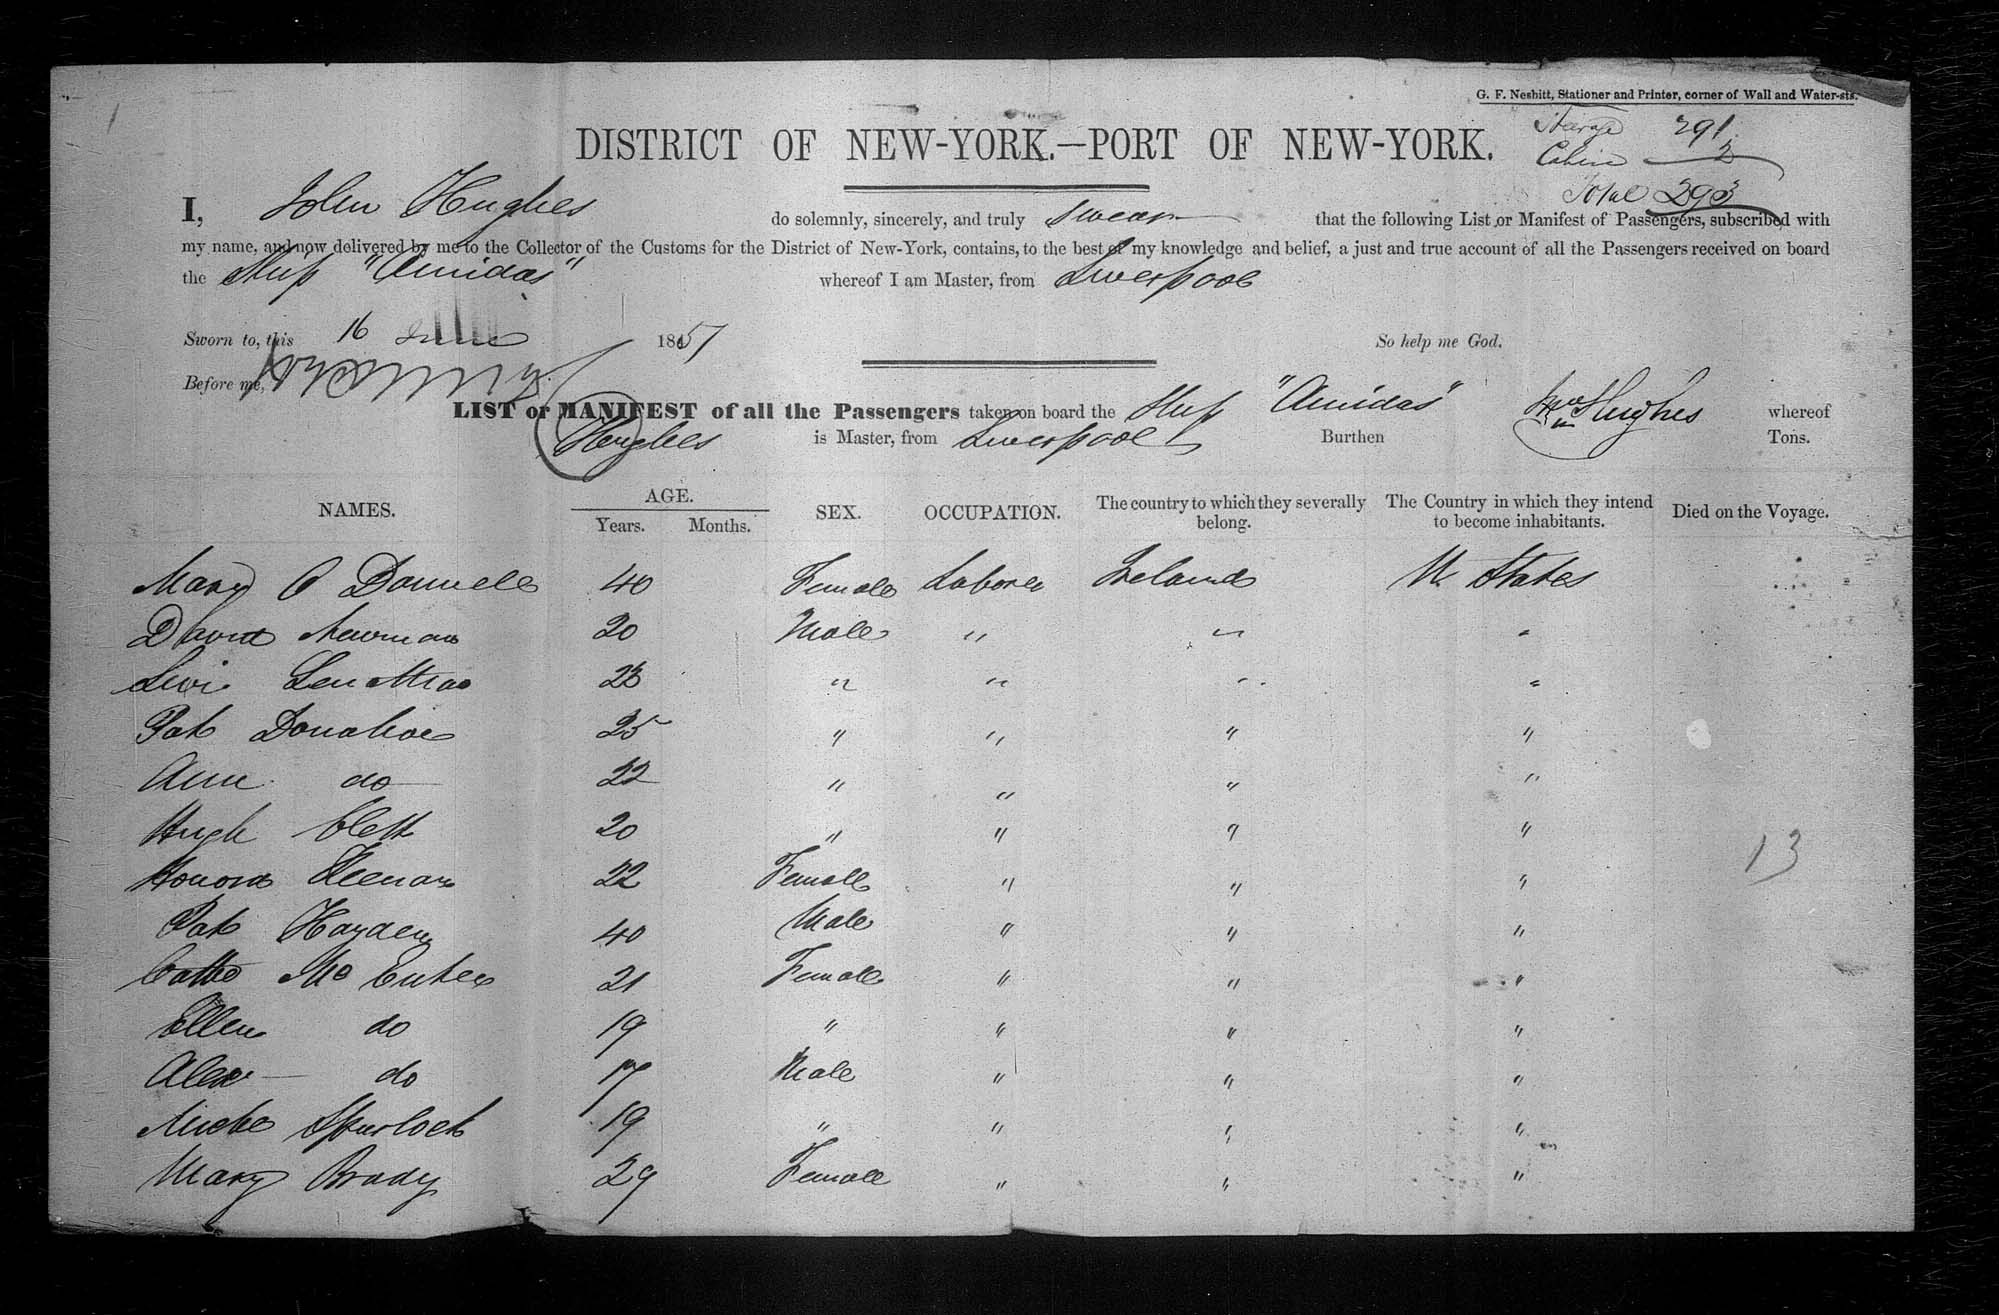 G. F. Nesbitt, Stationer and Printer, corner of Wall and Water-sts.
Steerage 291
Cabin 2
Total 293
DISTRICT OF NEW-YORK.—PORT OF NEW-YORK.
I, John Hughes do solemnly, sincerely, and truly swear that the following List or Manifest of Passengers, subscribed with
my name, and now delivered by me to the Collector of the Customs for the District of New-York, contains, to the best of my knowledge and belief, a just and true account of all the Passengers received on board
the Ship "Amidas" whereof I am Master, from Liverpool
Sworn to, this 16 June 1851 So help me God.
Before me,
LIST or MANIFEST of all the Passengers taken on board the Ship "Amidas" Hughes whereof
Hughes is Master, from Liverpool Burthen Tons.
NAMES. AGE. Years. Months. SEX. OCCUPATION. The country to which they severally belong. The Country in which they intend to become inhabitants. Died on the Voyage.
Mary O Donnell 40 Female Laborer Ireland U States
David Newman 20 Male " " "
Levi 23 " " " "
Pat Donahoe 25 " " " "
Ann do 22 " " " "
Hugh 20 " " " "
Honora Keenan 22 Female " " "
Pat Hayden 40 Male " " "
Cathe Mc Entee 21 Female " " "
Ellen do 19 " " " "
Alex do 17 Male " " "
Spurlock 19 " " " "
Mary Brady 29 Female " " "
13